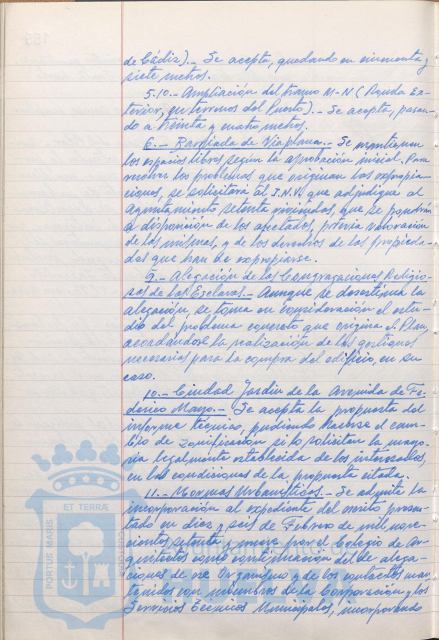 de Cádiz).- Se acepta, quedando en cincuenta y
siete metros.
5.10.- Ampliación del tramo M-N (Ronda Ex-
terior, en terrenos del Puerto).- Se acepta, pasan-
do a treinta y cuatro metros.
6.- Barriada de Viaplana.- Se mantienen
los espacios libres según la aprobación inicial. Para
resolver los problemas que originan las expropia-
ciones, se solicitará al I.N.V. que adjudique al
Ayuntamiento setenta viviendas, que se pondrán
a disposición de los afectados, previa valoración
de las mismas, y de los derechos de las propieda-
des que han de expropiarse.
9.- Alegación de las Congregaciones Religio-
sas de las Esclavas.- Aunque se desestima la
alegación, se toma en consideración el estu-
dio del problema concreto que origina el Plan,
acordándose la realización de las gestiones
necesarias para la compra del edificio, en su
caso.
10.- Ciudad Jardín de la Avenida de Fe-
derico Mayo.- Se acepta la propuesta del
informe técnico, pudiendo hacerse el cam-
bio de zonificación si lo solicitan la mayo-
ría legalmente establecida de los interesados,
en las condiciones de la propuesta citada.
11.- Normas Urbanísticas.- Se admite la
incorporación al expediente del escrito presen-
tado en diez y seis de Febrero de mil nove-
cientos setenta y nueve por el Colegio de Ar-
quitectos como continuación de las alega-
ciones de ese Organismo y de los contactos man-
tenidos con miembros de la Corporación y los
Servicios Técnicos Municipales, incorporando
PORTUS MARIS
ET TERRAE
CUSTODIA
Ayuntamiento de